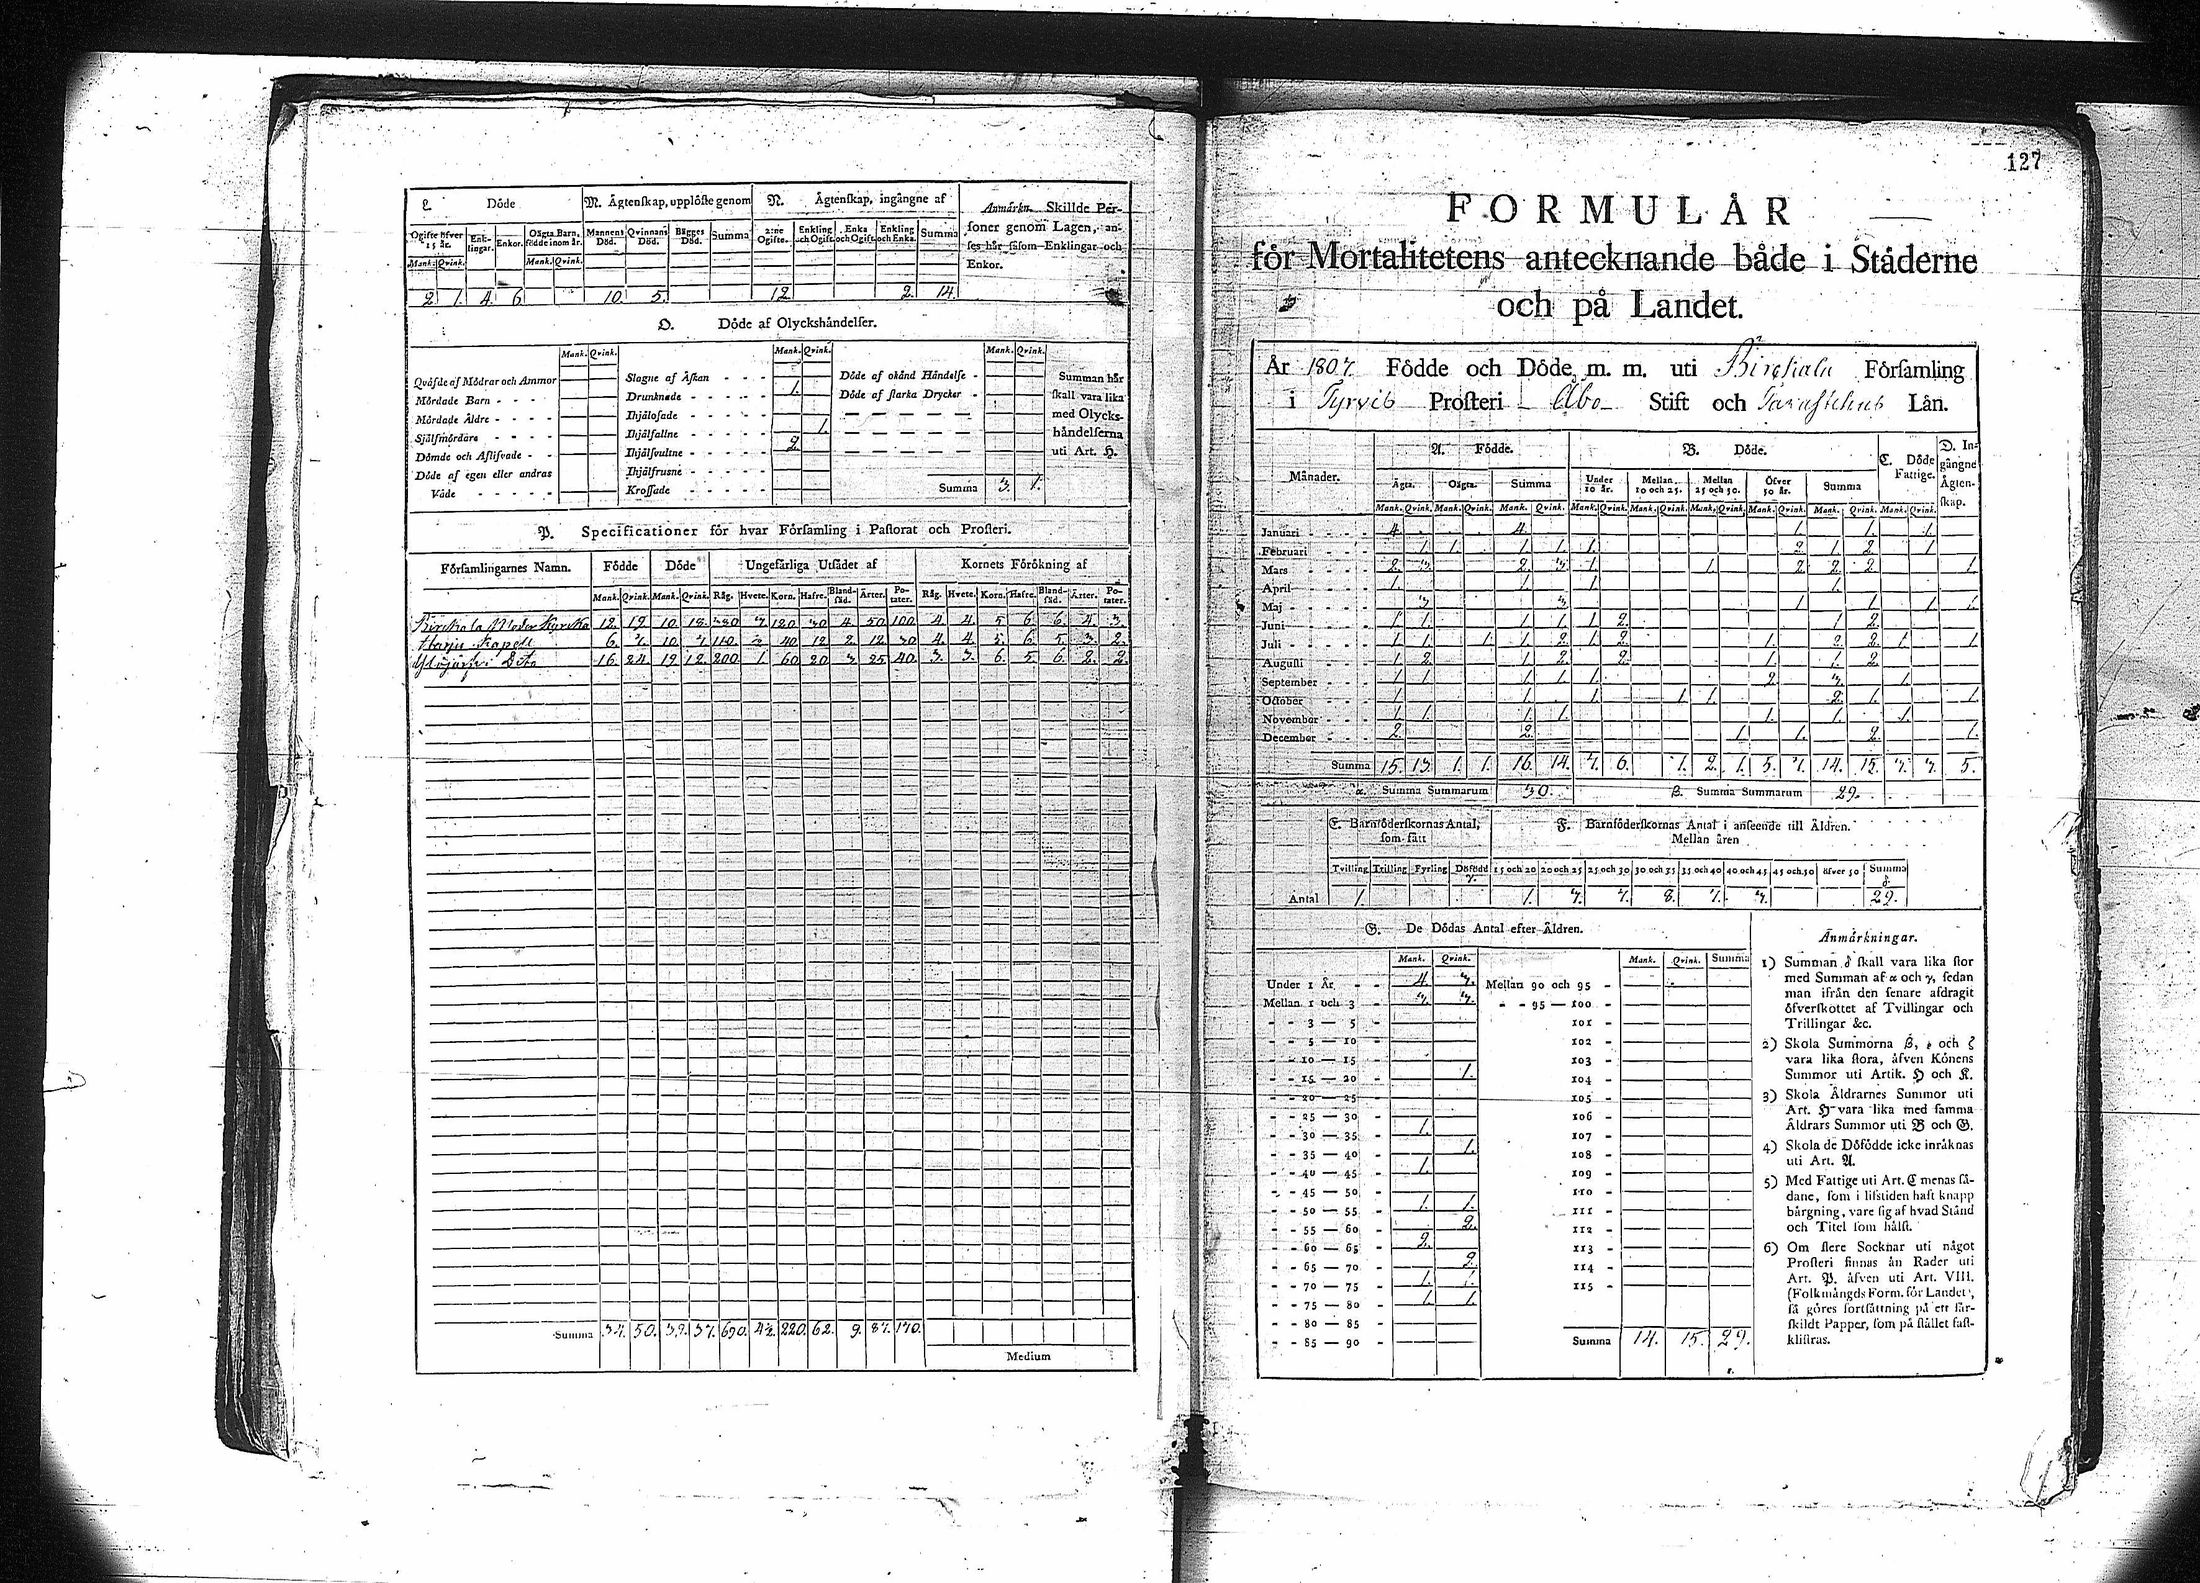 L Döde
M. Ägtenskap, upplöste genom
N. Ägtenskap, ingångne af
Anmärkn. Skillde Personer genom Lagen, anses här såsom Enklingar och Enkor.
Ogifte öfver 15 år. Enklingar. Enkor. Oägta Barn, födde inom år. Mannens Död. Qvinnans Död. Bägges Död. Summa 2:ne Ogifte. Enkling och Ogift. Enka och Ogift. Enkling och Enka. Summa
Mank. Qvink. Mank. Qvink.
2. 1. 4. 6. 10. 5. 12. 2. 14.
O. Döde af Olyckshändelser.
Mank. Qvink. Mank. Qvink. Mank. Qvink.
Qväfde af Mödrar och Ammor
Mördade Barn
Mördade Äldre
Självmördare
Dömde och Aflifvade
Döde af egen eller andras
Våde
Slagne af Åskan
Drunknade 1.
Ihjälosade
Ihjälfallne 1.
Ihjälsvultne 2.
Ihjälfrusne
Krossade
Döde af okänd Händelse
Döde af starka Drycker
Summa 3. 1.
Summan här
skall vara lika
med Olycks-
händelserna
uti Art. H.
P. Specificationer för hvar Församling i Pastorat och Prosteri.
Församlingarnes Namn. Födde Döde Ungefärliga Utsädet af Kornets Förökning af
Mank. Qvink. Mank. Qvink. Råg. Hvete. Korn. Hafre. Blandsäd. Ärter. Potater. Råg. Hvete. Korn. Hafre. Blandsäd. Ärter. Potater.
Birckala Moder Kyrcka 12. 19. 10. 18. 380 120 30 4. 50. 100. 4. 4. 5. 6. 6. 4. 3.
Harju Kapell 6. 7. 10. 7. 110. 40 12 2. 12. 30 4. 4. 5. 6. 5. 3. 2.
Ylöjärvi Dito 16. 24. 19. 12. 200 1. 60 20 3. 25. 40. 3. 3. 6. 5. 6. 2. 2.
Summa 34. 50. 39. 37. 690. 220. 62. 9. 87. 170.
Medium
127
FORMULÄR
för Mortalitetens antecknande både i Städerne
och på Landet.
År 1807. Födde och Döde, m. m. uti Birckala Församling
i Tyrvis Prosteri Åbo Stift och Tavastehus Län.
Månader. A. Födde. B. Döde. C. Döde Fattige. D. Ingångne Ägtenskap.
Ägta. Oägta. Summa Under 10 år. Mellan 10 och 25. Mellan 25 och 50. Öfver 50 år. Summa
Mank. Qvink. Mank. Qvink. Mank. Qvink. Mank. Qvink. Mank. Qvink. Mank. Qvink. Mank. Qvink. Mank. Qvink. Mank. Qvink.
Januari 4. 4. 1. 1. 1.
Februari 1. 1. 1. 1. 1. 2. 1. 2. 1.
Mars 2. 3. 2. 3. 1. 1. 2. 2. 2. 1.
April 1. 1. 1. 1.
Maj 3. 3. 1. 1. 1. 1.
Juni 1. 1. 1. 1. 1. 2. 1. 2.
Juli 1. 1. 1. 1. 2. 1. 2. 1. 2. 2. 1. 1.
Augusti 1. 2. 1. 2. 2. 1. 1. 2.
September 1. 1. 1. 1. 1. 2. 3. 1.
October 1. 1. 1. 1. 1. 2. 1. 1.
November 1. 1. 1. 1. 1. 1. 1.
December 2. 2. 1. 1. 2. 1.
Summa 15. 13. 1. 1. 16. 14. 7. 6. 1. 2. 1. 5. 7. 14. 15. 3. 3. 5.
α. Summa Summarum 30. β. Summa Summarum 29.
E. Barnföderskornas Antal,
som fått
F. Barnföderskornas Antal i anseende till Åldren.
Mellan åren
Tvilling Trilling Fyrling Dödfödd 15 och 20 20 och 25 25 och 30 30 och 35 35 och 40 40 och 45 45 och 50 öfver 50 Summa
γ. δ
Antal 1. 1. 3. 7. 8. 7. 3. 29.
G. De Dödas Antal efter Åldren.
Mank. Qvink. Mank. Qvink. Summa
Under 1 År 4 3. Mellan 90 och 95
Mellan 1 och 3 3. 3. 95 — 100
3 — 5 101
5 — 10 102
10 — 15 103
15 — 20 1. 104
20 — 25 105
25 — 30 106
30 — 35 1. 107
35 — 40 1. 108
40 — 45 1. 109
45 — 50 110
50 — 55 1. 1. 111
55 — 60 2. 112
60 — 65 2. 113
65 — 70 2. 114
70 — 75 1. 1. 115
75 — 80 1. 1.
80 — 85
85 — 90 Summa 14. 15. 29.
Anmärkningar.
1) Summan δ skall vara lika stor
med Summan af α och γ, sedan
man ifrån den senare afdragit
öfverskottet af Tvillingar och
Trillingar &c.
2) Skola Summorna β, ε och ζ
vara lika stora, äfven Könens
Summor uti Artik. H och K.
3) Skola Åldrarnes Summor uti
Art. H vara lika med samma
Åldrars Summor uti B och G.
4) Skola de Dödfödde icke inräknas
uti Art. A.
5) Med Fattige uti Art. C menas så-
dane, som i lifstiden haft knapp
bärgning, vare sig af hvad Stånd
och Titel som hälst.
6) Om flere Socknar uti något
Prosteri finnas än Rader uti
Art. P. äfven uti Art. VIII.
(Folkmängds Form. för Landet),
så göres fortsättning på ett sär-
skildt Papper, som på stället fast-
klistras.